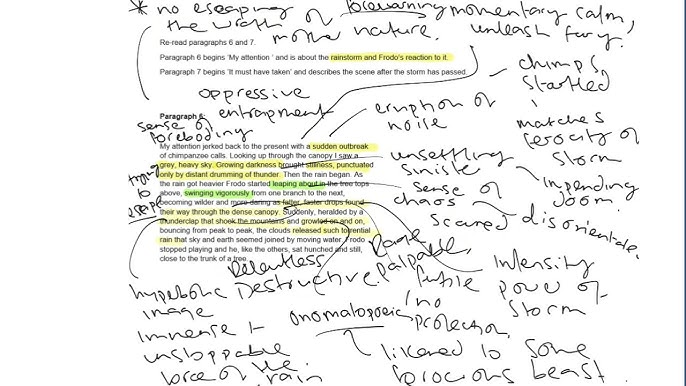 * no escaping
the wrath of
mother nature.
foreboding momentary calm,
unleash fury.
Re-read paragraphs 6 and 7.
Paragraph 6 begins 'My attention ' and is about the rainstorm and Frodo's reaction to it.
Paragraph 7 begins 'It must have taken' and describes the scene after the storm has passed.
oppressive
entrapment
chimps
startled
Paragraph 6:
sense of
foreboding
eruption of
noise
matches
ferocity of
storm
My attention jerked back to the present with a sudden outbreak
of chimpanzee calls. Looking up through the canopy I saw a
grey, heavy sky. Growing darkness brought stillness, punctuated
only by distant drumming of thunder. Then the rain began. As
the rain got heavier Frodo started leaping about in the tree tops
above, swinging vigorously from one branch to the next,
becoming wilder and more daring as faster, faster drops found
their way through the dense canopy. Suddenly, heralded by a
thunderclap that shook the mountains and growled on and on,
bouncing from peak to peak, the clouds released such torrential
rain that sky and earth seemed joined by moving water. Frodo
stopped playing and he, like the others, sat hunched and still,
close to the trunk of a tree.
trying
to
escape
unsettling
sinister
sense of
chaos
scared
impending
doom.
disorientate.
Relentless
Destructive.
Rage
palpable.
futile
/no
protection.
intensity
power of
storm
hyperbolic
image
immense +
unstoppable
force of the
rain
onomatopoeic
likened to some
ferocious beast.